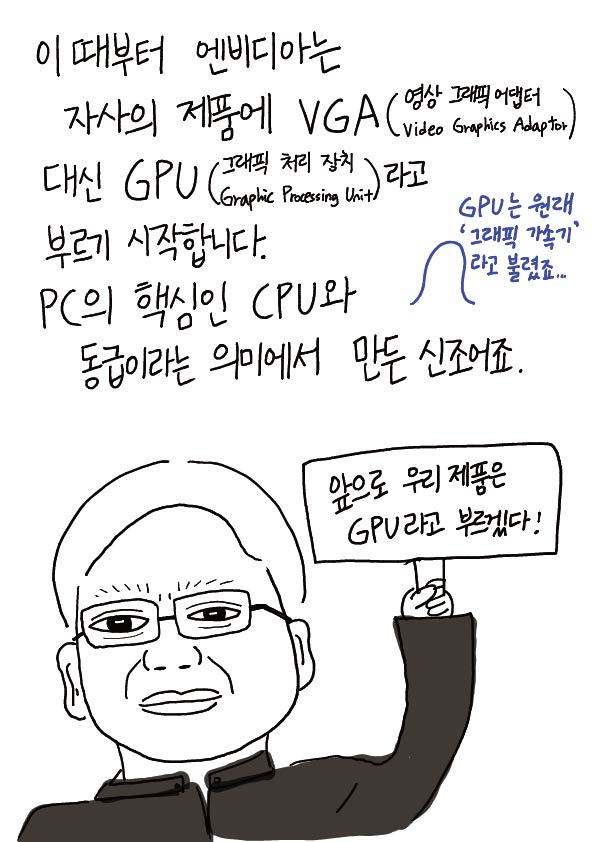 이 때부터 엔비디아는
자사의 제품에 VGA(영상 그래픽 어댑터
Video Graphics Adaptor)
대신 GPU(그래픽 처리 장치
Graphic Processing Unit)라고
부르기 시작합니다.
GPU는 원래
‘그래픽 가속기’
라고 불렸죠...
PC의 핵심인 CPU와
동급이라는 의미에서 만든 신조어죠.
앞으로 우리 제품은
GPU라고 부르겠다!